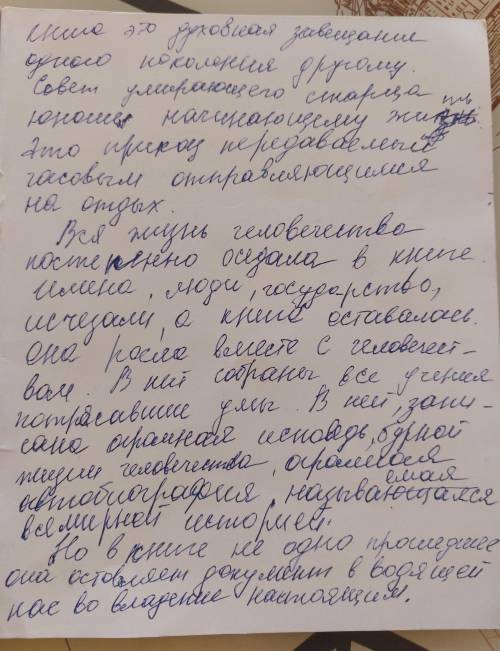 книга это духовная завещание
одного поколения другому.
Совет умирающего старца
юноши начинающему жить
Это приказ передаваемый
часовым отправляющимся
на отдых.
Вся жизнь человечества
постепенно оседала в книге
имена, люди, государство,
исчезали, а книга оставалась.
она росла вместе с человечест-
вом. В ней собраны все учения
потрясавшие умы. В ней, запи-
сана огромная исповедь, бурной
жизни человечества, огромная
автобиография, называемая
всемирной историей.
Но в книге не одно прошедшее
она оставляет документ в водящей
нас во владение настоящим.